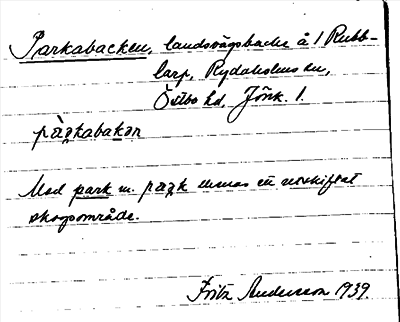 Parkabacken, landsvägsbacke å 1 Rubb-
larp, Rydaholms sn,
Östbo hd, Jönk. l.
pàrkabakən
Med park m. park menas ett utskiftat
skogsområde.
Fritz Andersson 1939.